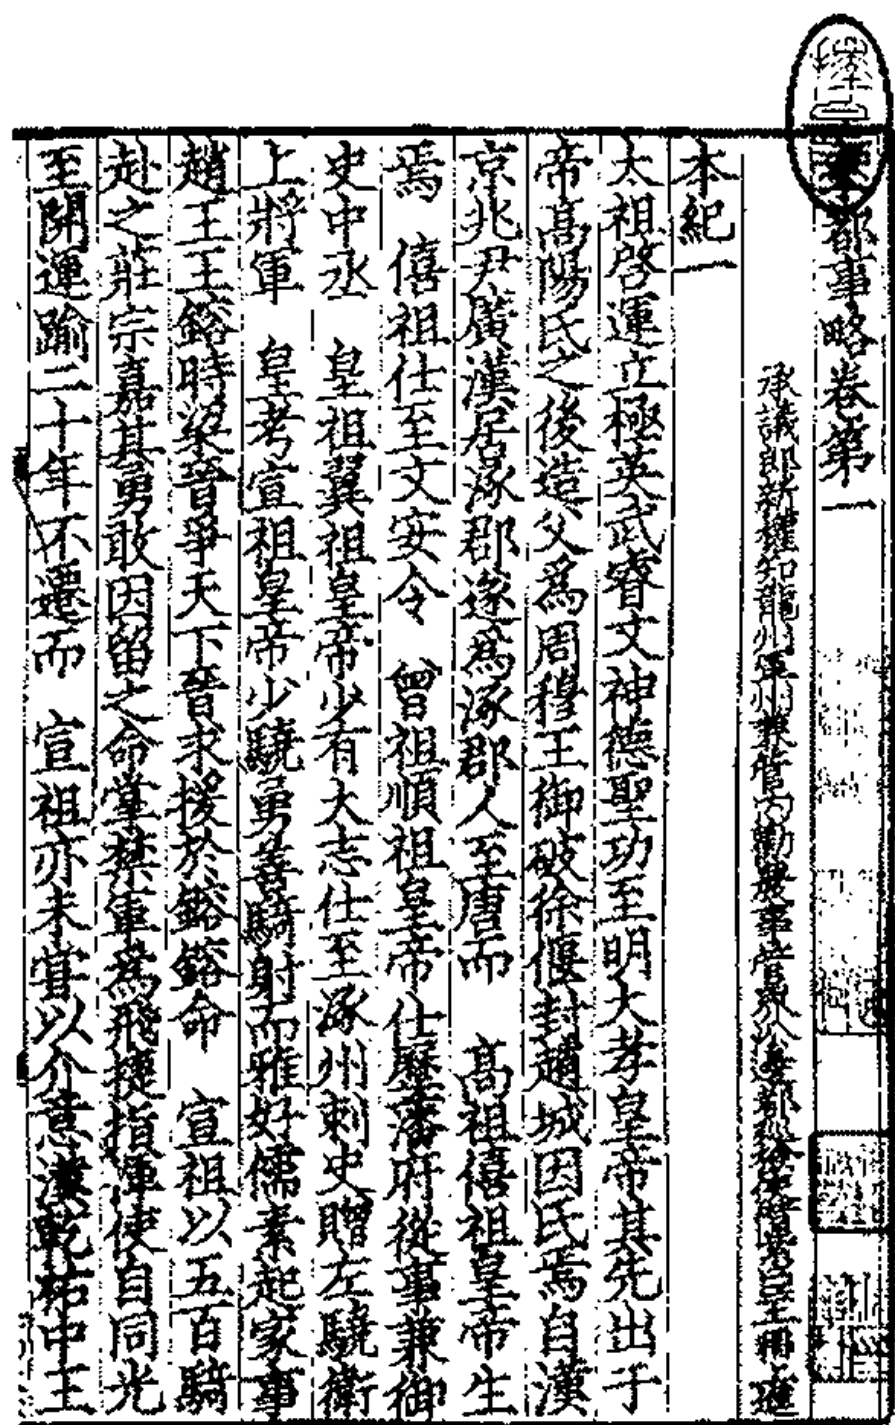 東都事略卷第一
承議郎新權知龍州軍州兼管內勸農事管界沿邊都巡檢使借紫臣王稱撰
本紀一
太祖啓運立極英武睿文神德聖功至明大孝皇帝其先出于
帝高陽氏之後造父爲周穆王御破徐偃封趙城因氏焉自漢
京兆尹廣漢居涿郡遂爲涿郡人至唐而 高祖僖祖皇帝生
焉 僖祖仕至文安令 曾祖順祖皇帝仕歷藩府從事兼御
史中丞 皇祖翼祖皇帝少有大志仕至涿州刺史贈左驍衛
上將軍 皇考宣祖皇帝少驍勇善騎射而雅好儒素起家事
趙王王鎔時梁晉爭天下晉求援於鎔鎔命 宣祖以五百騎
赴之莊宗嘉其勇敢因留之命掌禁軍爲飛捷指揮使自同光
至開運踰二十年不遷而 宣祖亦未甞以介意漢乾祐中王